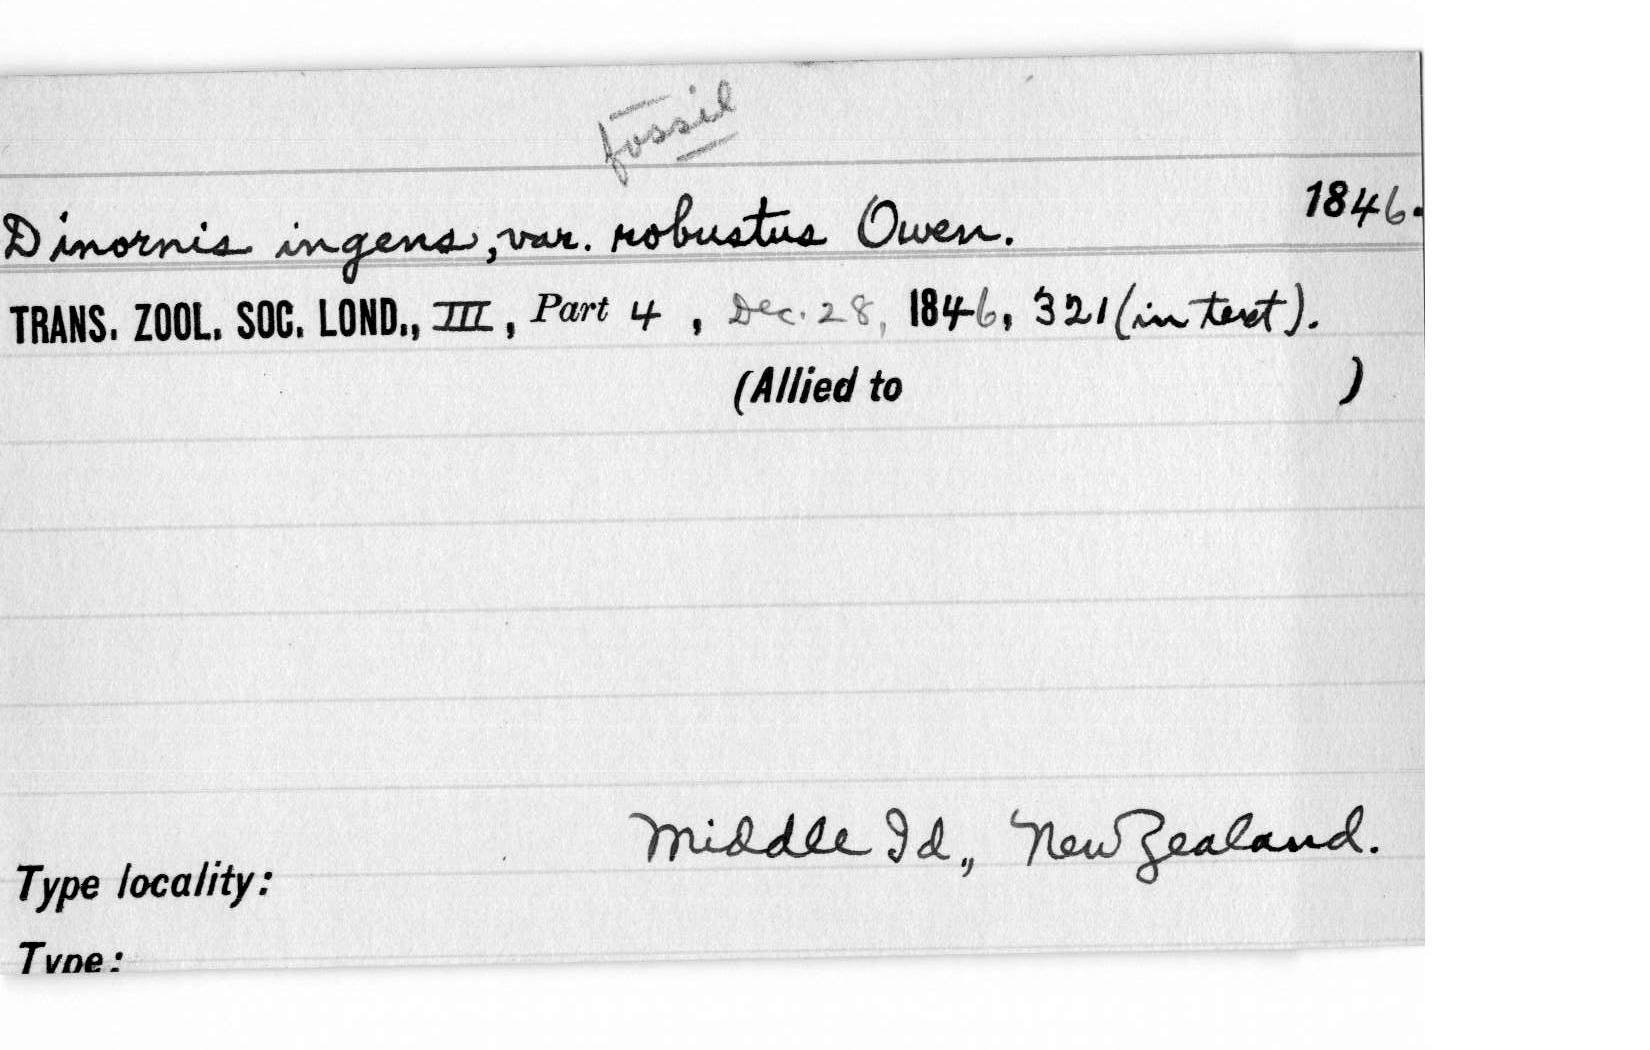 fossil
1846.
Dinornis ingens, var. robustus Owen.
TRANS. ZOOL. SOC. LOND., III, Part 4, Dec. 28, 1846, 321 (in text).
(Allied to )
Middle Id., New Zealand.
Type locality:
Type: